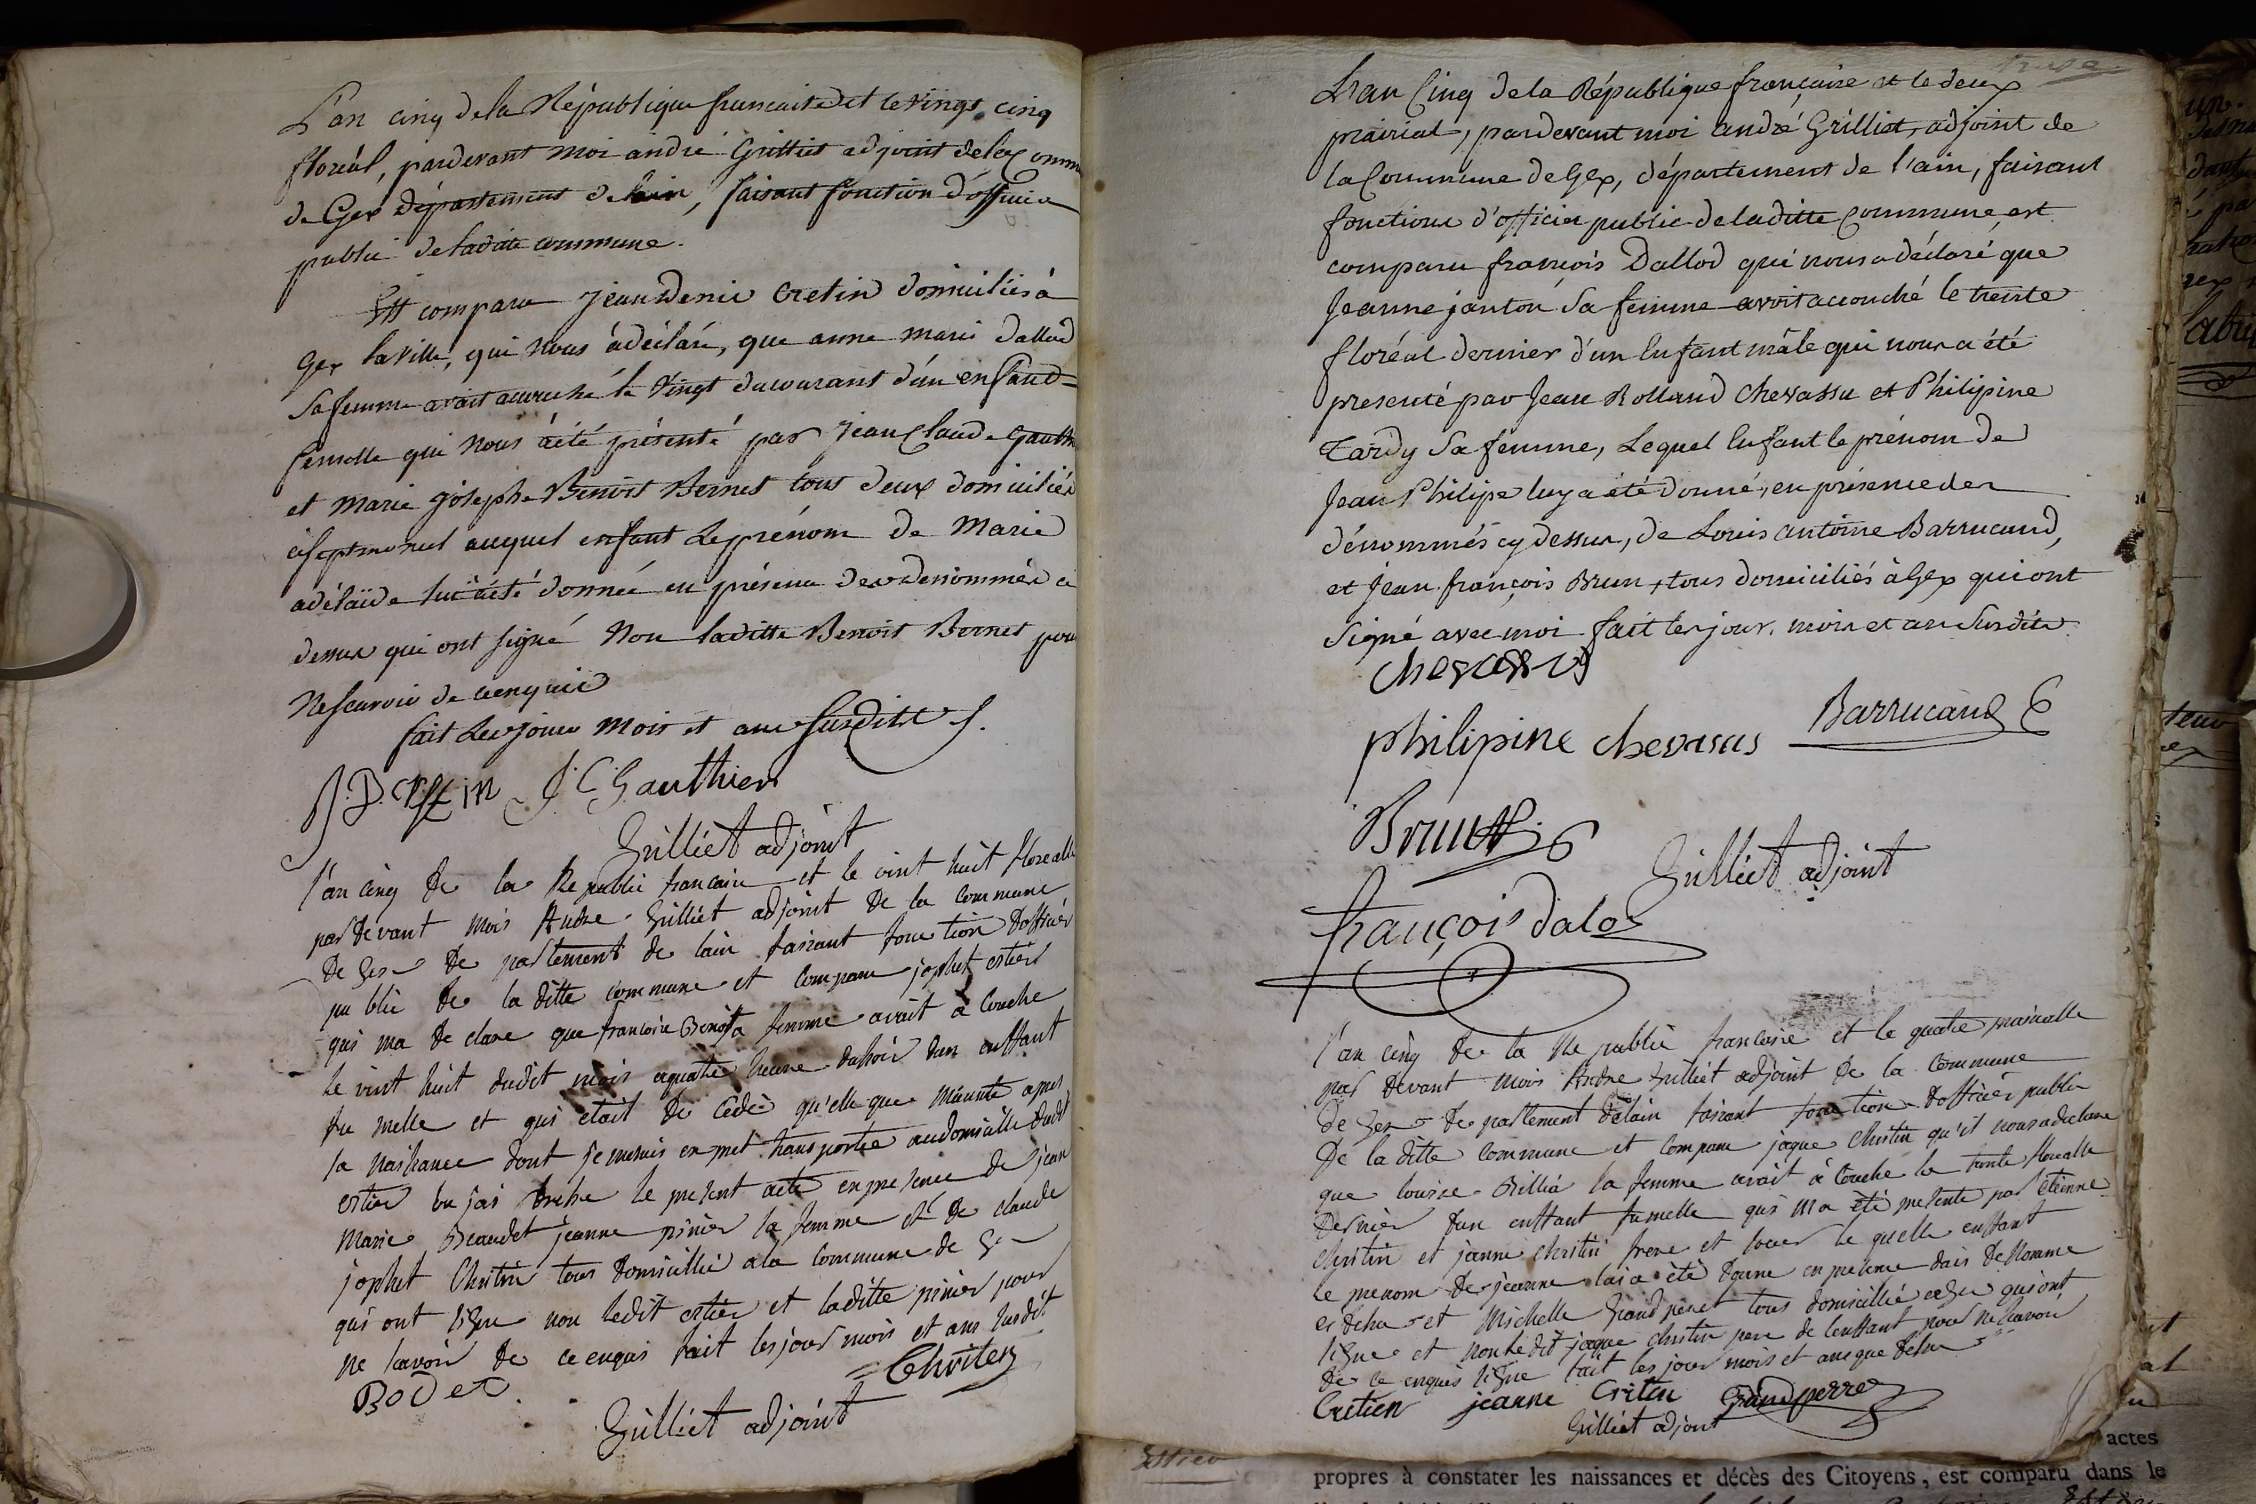 L'an cinq de la République francaise et le vingt cinq
floréal, pardevant moi andré Grilliet adjoint dela Commu
de Gex département de lain, faisant fonction d'officier
public de ladite commune.
Est comparu Jean Denis Cretin domiciliés à
Gex la ville, qui nous à déclaré, que anne marie dallod
sa femme avait accouché le vingt du courant d'un enfand
femelle qui nous à été présenté par Jean Claude Gauth
et marie joseph Benoit Bernet tous deux domiciliés
à Septmoncel auquel enfant le prénom de Marie
adélaïde lui à été donnée en présence des denommés ci
dessus qui ont signé Non laditte Benoit Bernet pour
Ne scavoir de ce enquis
fait les jour mois et an susditte s.
J. D. Cretin J. C. Gauthier
Grilliet adjoint
l'an cinq de la Republi francaise et le vint huit florealle
pardevant mois Andre Grilliet adjoint de la commune
de Gex de partement de lain faisant fonction dofficier
publie de la ditte commune et comparu jophet estier
qui ma de clare que francoise Benoit sa femme avait a Couche
le vint huit dudit mois a quatre heure du soir dun enffant
fu melle et qui etait de Cédé qu'elle que Minute apres
sa naissance dont je me suis en met transporter au domicille dudit
estier ou jai dresse le present acte en presence de jean
Marie Beaudet jeanne pinier sa femme et de claude
jophet Chritin tous domicillié a la commune de Gex
qui ont signe non ledit estier et laditte pinier pour
ne savoir de ce enquis fait les jour mois et an susdit
Bodet Chritin
Grilliet adjoint
L'an Cinq de la République française et le deux
prairial, pardevant moi andré Grilliet, adjoint de
la Commune de Gex, département de l'ain, faisant
fonctions d'officier public de laditte Commune, est
comparu françois Dallod qui nous a déclaré que
Jeanne janton sa femme avoit accouché le trente
floréal dernier d'un Enfant mâle qui nous a été
presenté par Jean Rolland Chevassu et Philipine
Tardy sa femme, Lequel Enfant le prénom de
Jean Philipe luy a été donné, en présence des
dénommés cy dessus, de Louis antoine Barrucand,
et Jean françois Brun, tous domiciliés à Gex qui ont
signé avec moi fait les jour, mois et an susdits.
chevassus
philipine chevasus Barrucand
Brun
Grilliet adjoint
françois dalod
l'an cinq de la Re publie francaise et le quatre prairialle
par devant mois Andre Grilliet adjoint de la commune
de Gex de partement delain faisant fonction dofficier public
De la ditte commune et comparu jaque Chritin qu'il nous a declare
que louise Brillia sa femme avait à Couche le trente florealle
dernier dun enffant fumelle qui ma été presente par étienne
Chritin et jeanne Chritin frere et soeur le quelle enffant
le prenom de jeanne lui a été donne en presence dais de nomme
ci desu et Michelle Grand peret tous domicillié a Gex qui ont
signe et non ledit jaque Chritin pere de lenffant pour ne savoir
de ce enquis signe fait les jour mois et an que desu
Cretien jeanne Critin Grandperret
Grilliet adjoint
actes
propres à constater les naissances et décès des Citoyens, est comparu dans le